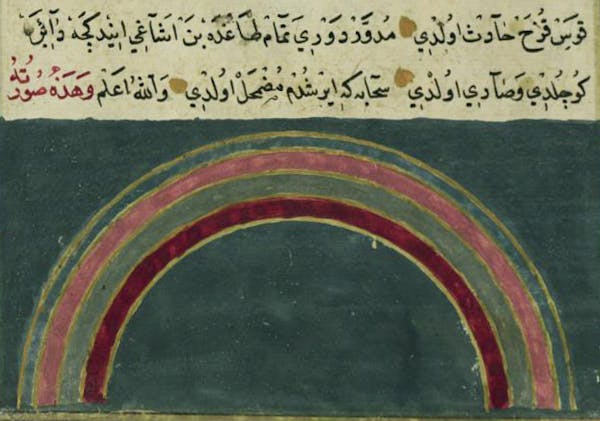 قوس قزح حادث اولدي مدوّر دوري تمام طاغده بن اشاغي ايندكچه دآئره
كوچلدي وصآري اولدي سحابه كه ايرشدم مضمحل اولدي والله اعلم وهذه صورته